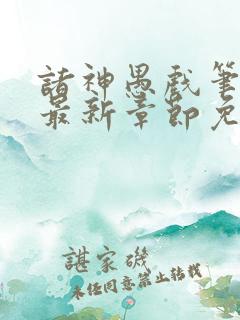 諸神愚戲筆
最新章節免
諶家磯
未经同意禁止转载